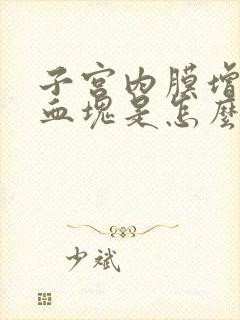 子宫内膜增
血块是怎麽
少斌